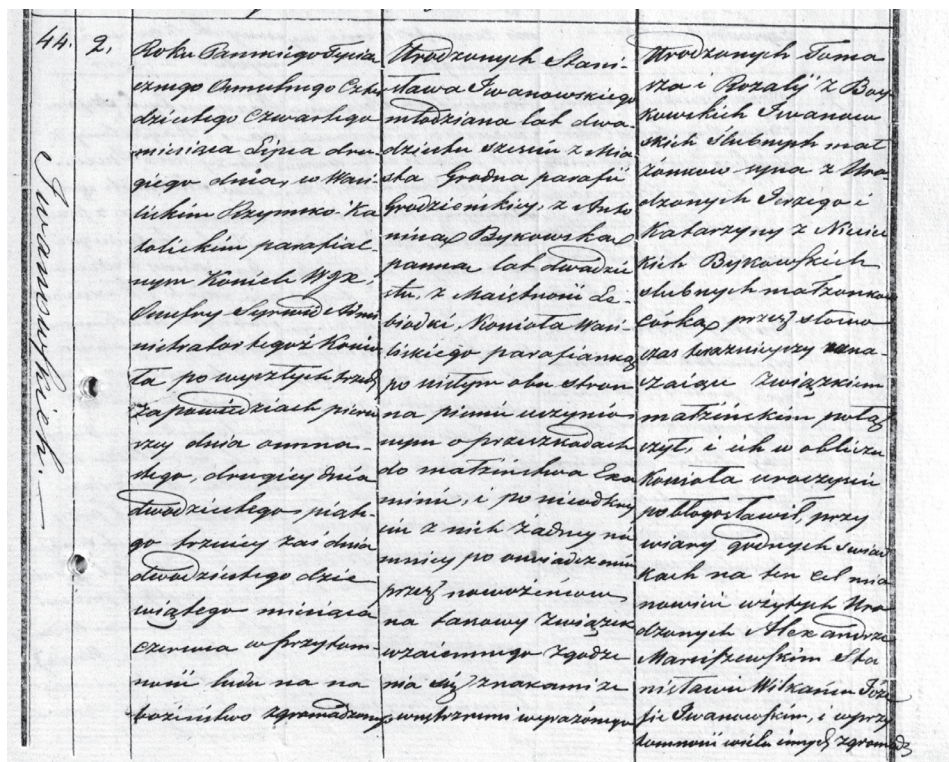 44. 2.
Iwanowskich. —
Roku Pańskiego Tysią
cznego Ośmsetnego Czter
dziestego Czwartego
miesiąca Lipca dru
giego dnia, w Wasi
liskim Rzymsko-Ka
tolickim parafial
nym Kościele WJX.
Onufry Syrwid Admi
nistrator tegoż Kościo
ła po wyszłych trzech
zapowiedziach pierw
szey dnia ośmna-
stego, drugiey dnia
dwudziestego piąt-
go trzeciey zaś dnia
dwudziestego dzie
wiątego miesiąca
czerwca w przytom-
ności ludu na na
bożeństwo zgromadzonego
Urodzonych Stani-
sława Iwanowskiego
młodziana lat dwa
dzieścia sześciu z Mia
sta Grodna parafii
Grodzieńskiey, z Anto
niną Bykowską
panną lat dwadzie
stu, z Maiętności Le-
biodki, Kościoła Wasi-
liskiego parafianką
po ścisłym obu stron
na piśmie uczynio
nym o przeszkodach
do małżeństwa Exa
minie, i po nieodkry
ciu z nich żadney na
mniey po oświadczeniu
przez nowożeńcow
na tanowy związek
wzaiemnego zgodze
nia się znakami ze
wnętrznemi wyrażonego
Urodzonych Toma
sza i Rozalij z Boy
kowskich Iwanow
skich ślubnych mał
żonkow syna z Uro
dzonych Jerzego i
Katarzyny z Niciec
kich Bykowskich
ślubnych małżonkow
córką przez słowa
czas teraźnieyszy ozna
czaiące związkiem
małżeńskim połą
czył, i ich w obliczu
Kościoła uroczyście
pobłogosławił, przy
wiary godnych świad
kach na ten cel mia
nowicie użytych Uro
dzonych Alexandrze
Marciszewskim Sta
nisławie Wilkańcu Józe
fie Iwanowskim, i w przy
tomności wielu innych zgromadz